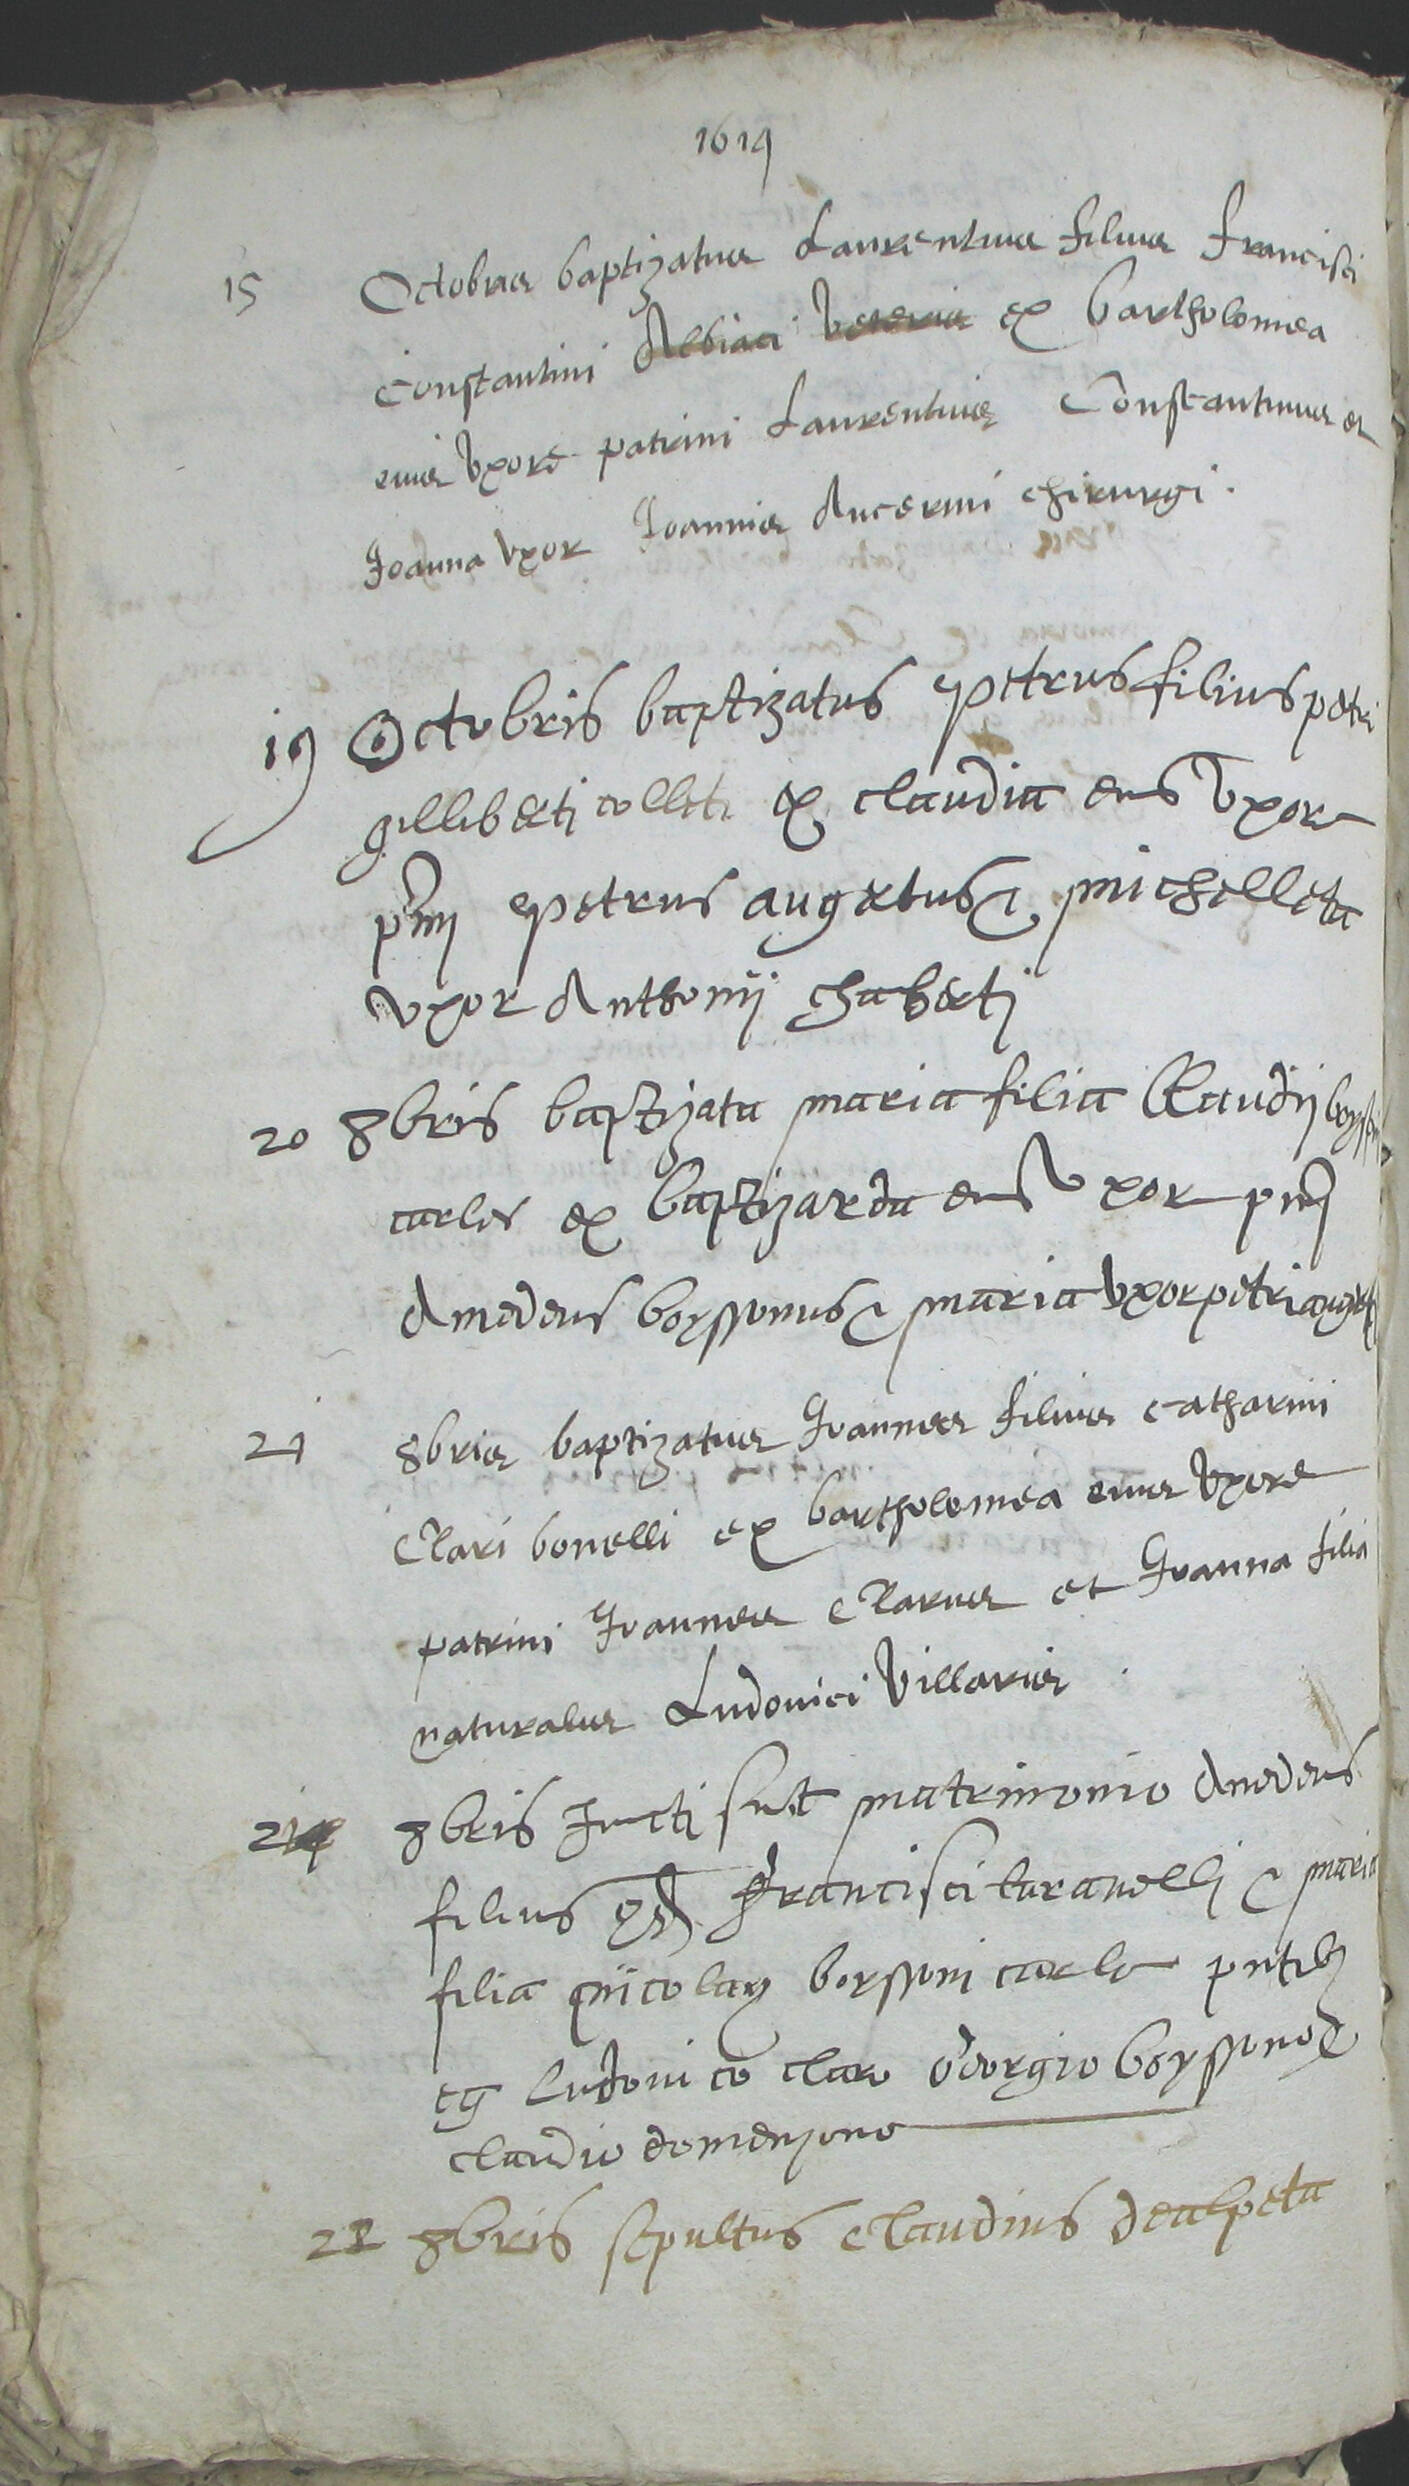 1619
15 Octobris baptizatus Laurentius filius Francisci
Constantini Albiaci Veteris ex bartholomea
eius Uxore patrini Laurentius Constantinus et
Joanna Uxor Joannis Ancermi chirurgi.
19 Octobris baptizatus petrus filius petri
gilliberti colleti ex claudia eius Uxore
prni petrus augertus & michelleta
uxor Anthonij chaberti
20 8bris baptizata maria filia Claudij
carles ex baptizarda eius Uxor prnj
Amedeus boyssonus & maria Uxor petri augerti
21 8bris baptizatus Joannes filius catharini
Clari bonelli ex bartholomea eius Uxore
patrini Joannes Clarus et Joanna filia
naturalis Ludovici Villaris.
21 8bris Juncti sunt matrimonio Amedeus
filius Francisci taravelli & maria
filia nicolay boyssoni carle pntibus
eg Ludovico claro Georgio boyssono &
claudio domenzono
22 8bris sepultus Claudius dealpeta